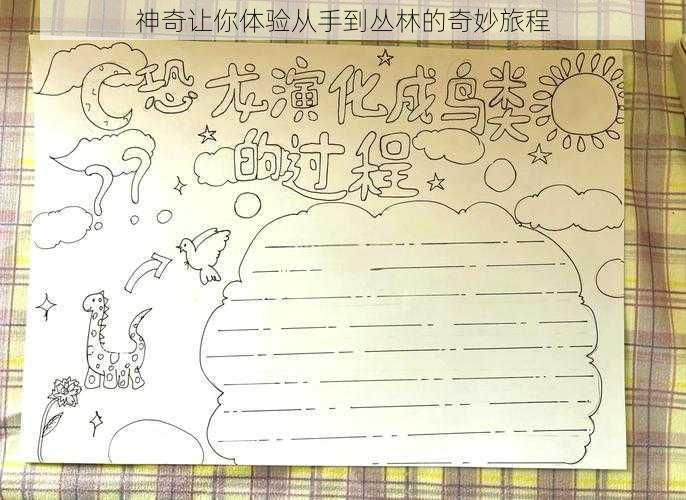 神奇让你体验从手到丛林的奇妙旅程
恐龙演化成鸟类
的过程
??